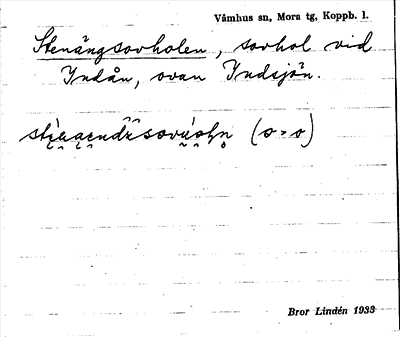 Våmhus sn, Mora tg, Koppb. l.
Stenängsovholen, sovhol vid
Indån, ovan Indsjön.
(o = o)
Bror Lindén 1933